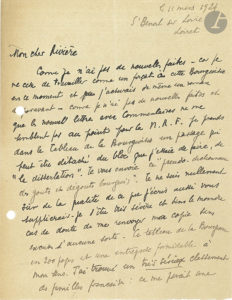 11 mars 1924
St Benoît sur Loire
Loiret
Mon cher Rivière
Comme je n'ai pas de nouvelles faites - car je
ne cesse de travailler comme un forçat à cette Bourgeoisie
en ce moment et que j'achèverai de même un
comme je n'ai pas de nouvelles faites et
que le nouvel avec Commentaires ne me
semblent pas au point pour la N. R. F. je prends
dans le Tableau de la Bourgeoisie un passage qui
peut être détaché du bloc que j'étais de faire, de
"la dissertation". Je vous envoie ce "pseudo-dictionnaire
des goûts et dégoûts bourgeois". Je ne suis nullement
sûr de la qualité de ce que j'écris aussi vous
supplierais-je d'être très sévère et dans le moindre
cas de doute de me renvoyer ma copie sans
d'aucune sorte. Le tableau de la Bourgeoisie
en 200 pages est une entreprise formidable à
mon sens. J'ai trouvé un très sérieux classement
des familles françaises : ce me paraît une